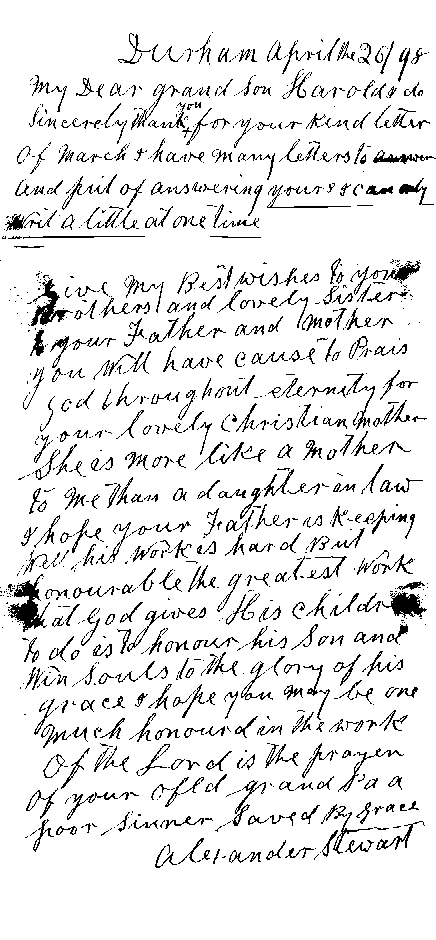 Durham April the 26/98
My Dear grand Son Harold I do
Sincerely thank you for your kind letter
Of March I have many letters to answer
And put of answering yours I can only
writ a little at one time
Give My Best wishes to your
Brothers and lovely Sister
to your Father and Mother
you will have cause to Prais
God throughout eternity for
your lovely Christian Mother
She is more like a Mother
to Me than a daughter in law
I hope your Father is Keeping
Well his work is hard But
honourable the greatest work
that God gives His children
to do is to honour his Son and
Win Souls to the glory of his
grace I hope you may be one
much honourd in the work
Of the Lord is the prayer
Of your ofld grand Pa a
poor Sinner Saved By grace
Alexander Stewart